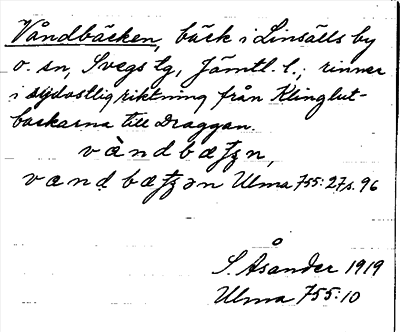 Våndbäcken, bäck i Linsälls by
o. sn, Svegs tg, Jämtl. l.; rinner
i sydostlig riktning från Klinglut-
backarna till Draggan.
Ulma 755:27 s. 96
S. Åsander 1919
Ulma 755:10